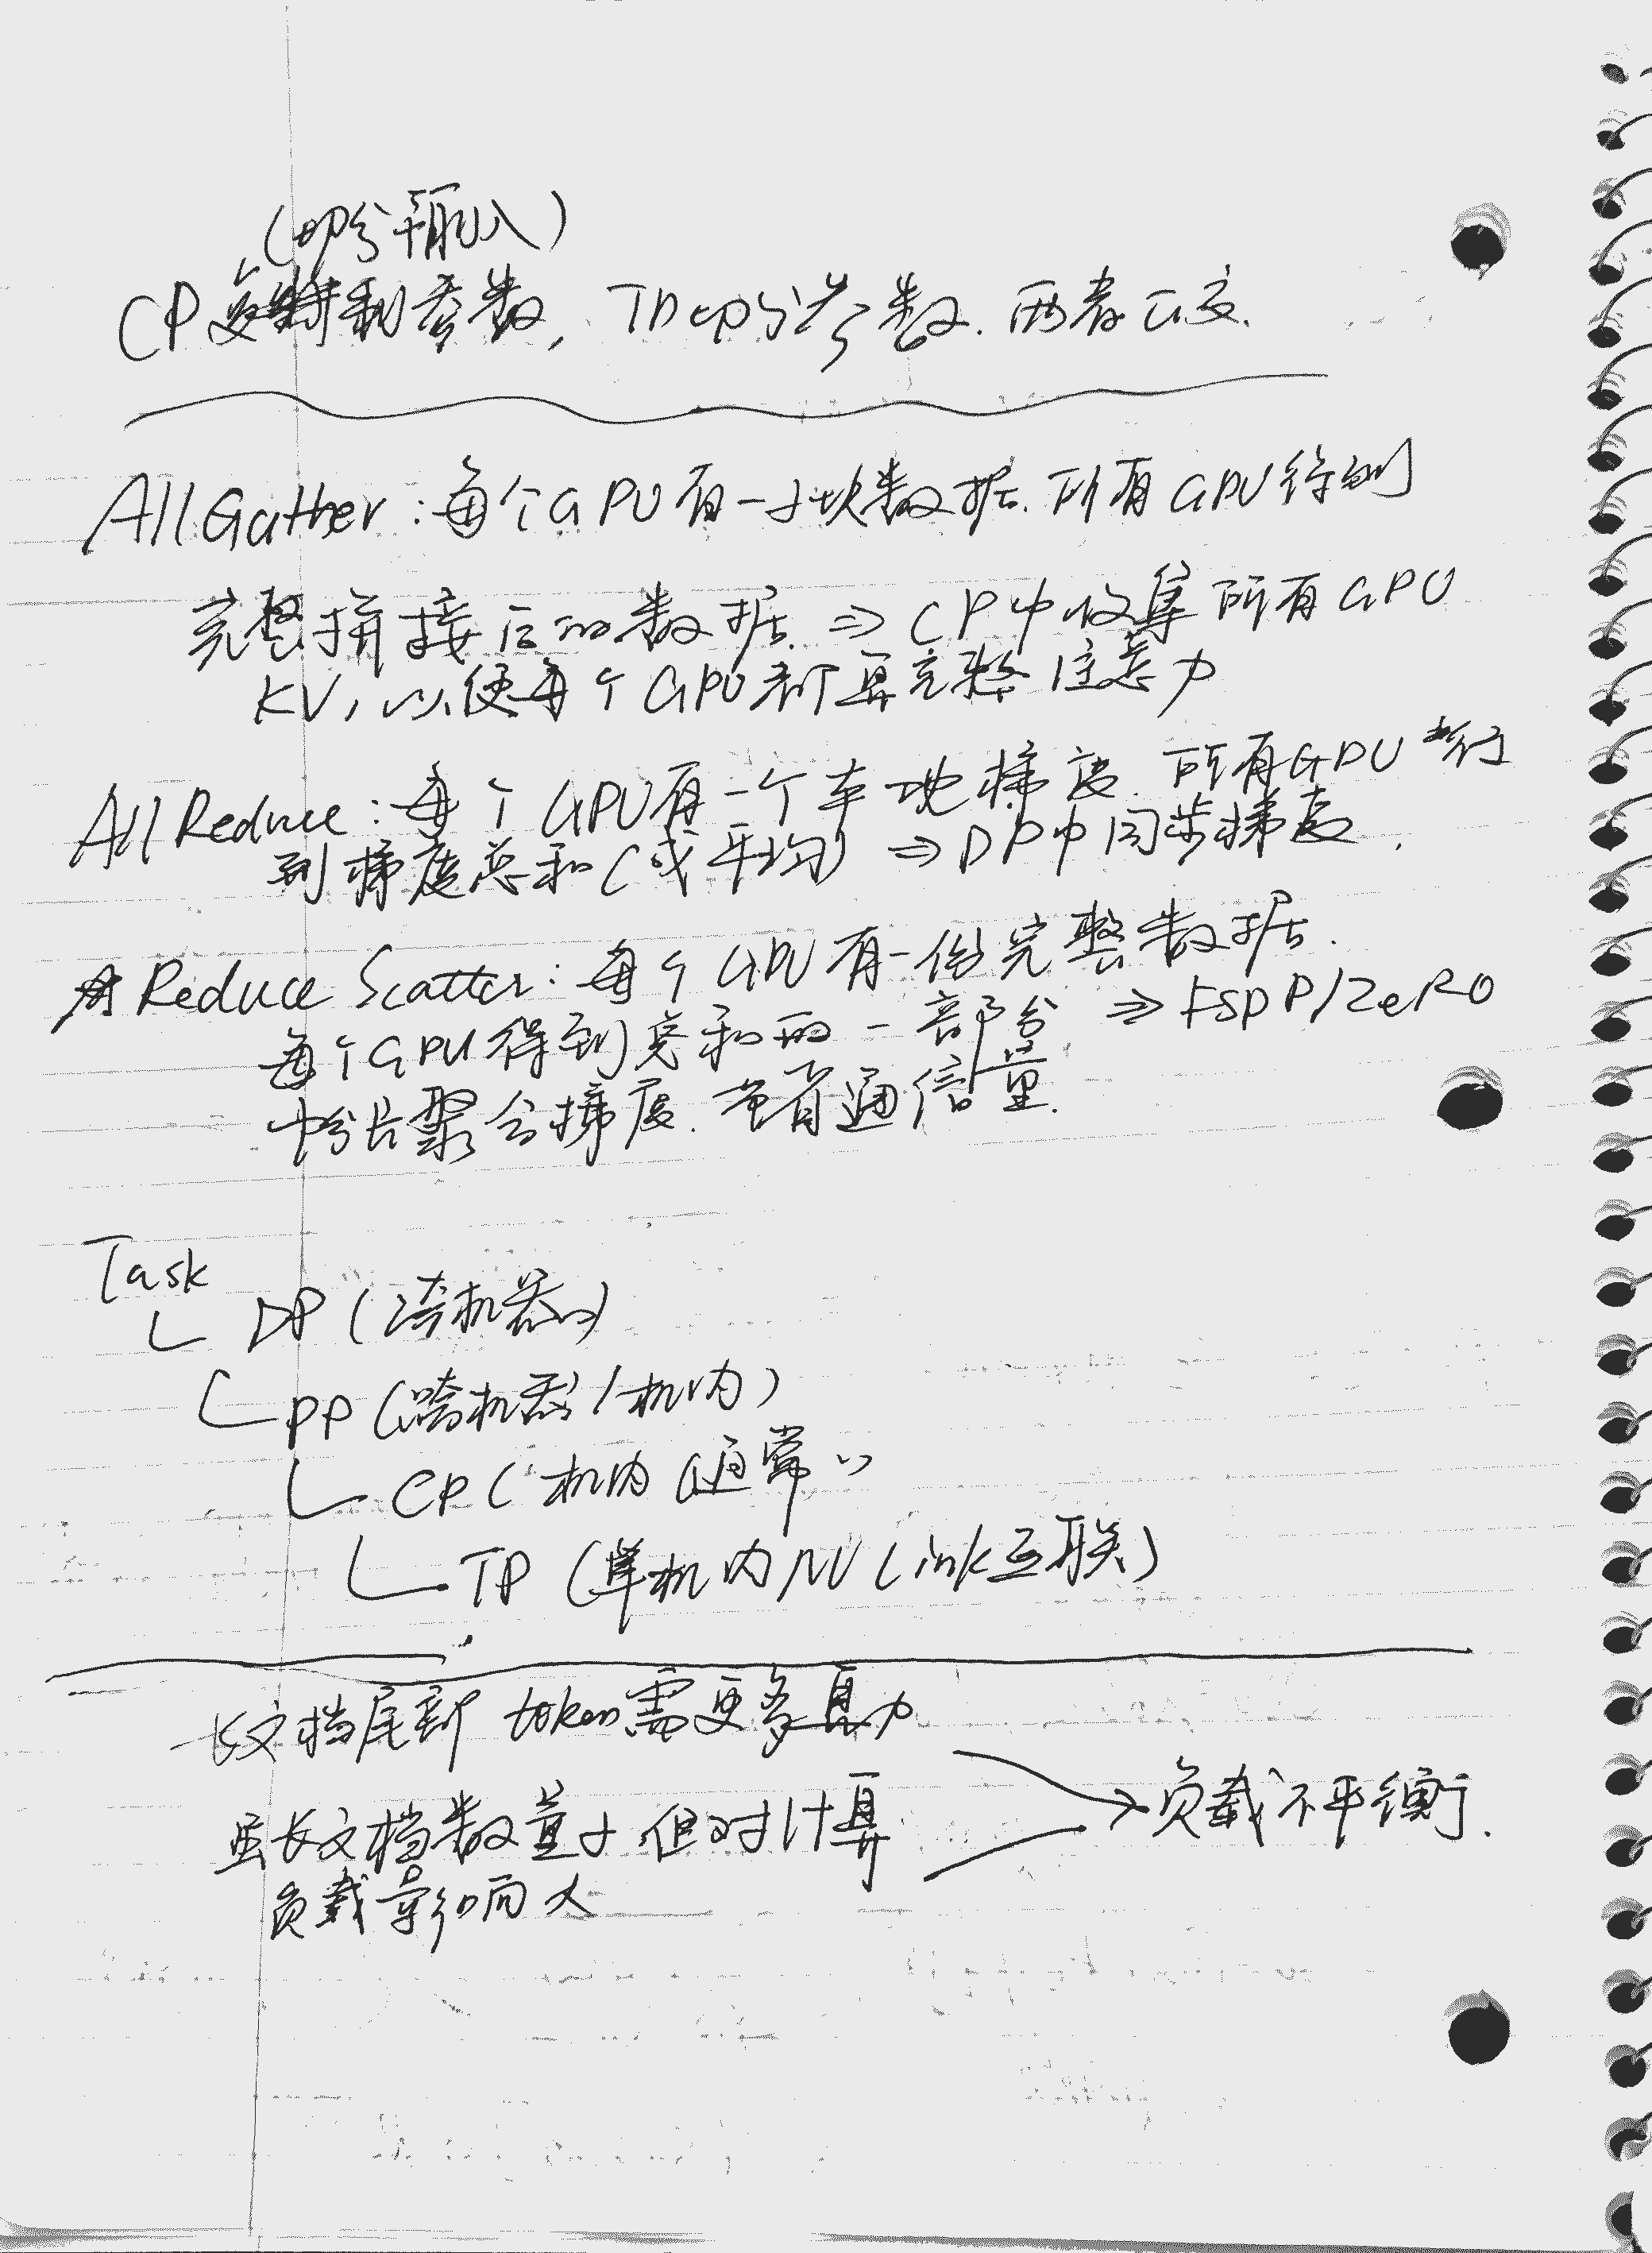 (切分输入)
CP复制参数, TP切分参数. 两者正交.
AllGather: 每个GPU有一小块数据. 所有GPU得到
完整拼接后的数据. ⇒ CP中收集所有GPU
KV, 以便每个GPU都算完整注意力
AllReduce: 每个GPU有一个本地梯度. 所有GPU得
到梯度总和(或平均) ⇒ DP中同步梯度.
Reduce Scatter: 每个GPU有一份完整数据.
每个GPU得到总和的一部分 ⇒ FSDP/ZeRO
中分片聚合梯度. 节省通信量.
Task
DP (跨机器)
PP (跨机器/机内)
CP (机内(通常))
TP (单机内NVLink互联)
长文档尾部 token需更多算力
虽长文档数量少 但对计算
负载影响大
→负载不平衡.